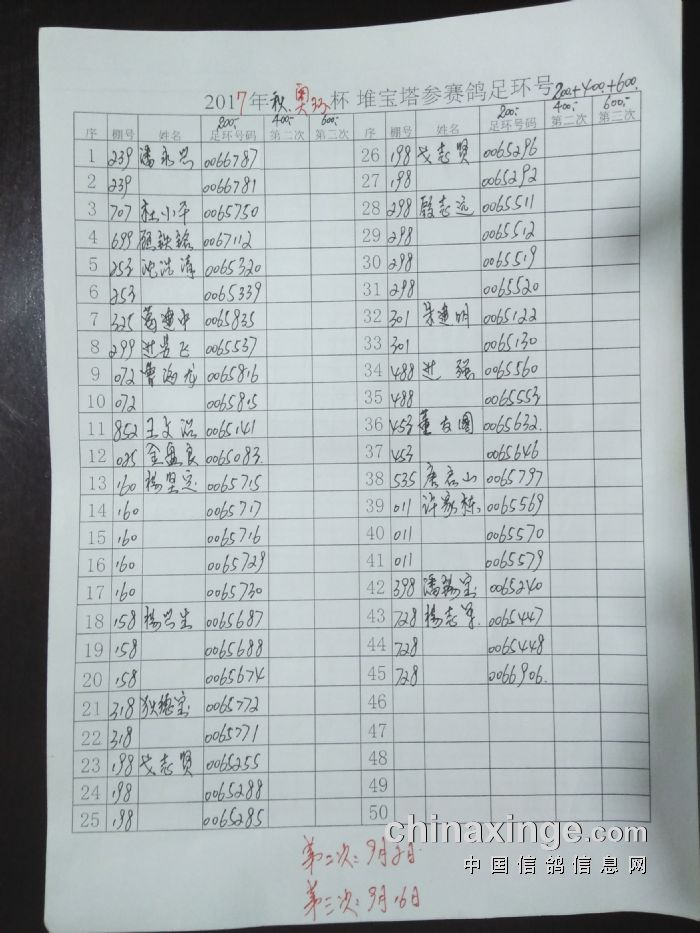 2017年秋奥环杯 堆宝塔参赛鸽足环号 200+400+600
200 400 600 200 400 600
序 棚号 姓名 足环号码 第二次 第三次 序 棚号 姓名 足环号码 第二次 第三次
1 239 潘永兴 0066787 26 198 戈志贤 0065296
2 239 0066781 27 198 0065292
3 707 杜小平 0065750 28 298 殷志远 0065511
4 699 0067112 29 298 0065512
5 253 沈洪清 0065320 30 298 0065519
6 253 0065339 31 298 0065520
7 325 葛建中 0065835 32 301 吴建明 0065122
8 299 进飞 0065537 33 301 0065130
9 072 曹海龙 0065816 34 488 进强 0065560
10 072 0065815 35 488 0065553
11 852 王文 0065141 36 453 董友国 0065632
12 025 金盘良 0065083 37 453 0065646
13 160 杨坚定 0065715 38 535 唐山 0065797
14 160 0065717 39 011 许家栋 0065569
15 160 0065716 40 011 0065570
16 160 0065729 41 011 0065579
17 160 0065730 42 398 潘锡宝 0065240
18 158 杨兴生 0065687 43 728 杨志军 0065447
19 158 0065688 44 728 0065448
20 158 0065674 45 728 0066906
21 318 狄德宝 0065772 46
22 318 0065771 47
23 198 戈志贤 0065255 48
24 198 0065288 49
25 198 0065285 50
第二次:9月2日
第三次:9月16日
chinaxinge.com
中国信鸽信息网